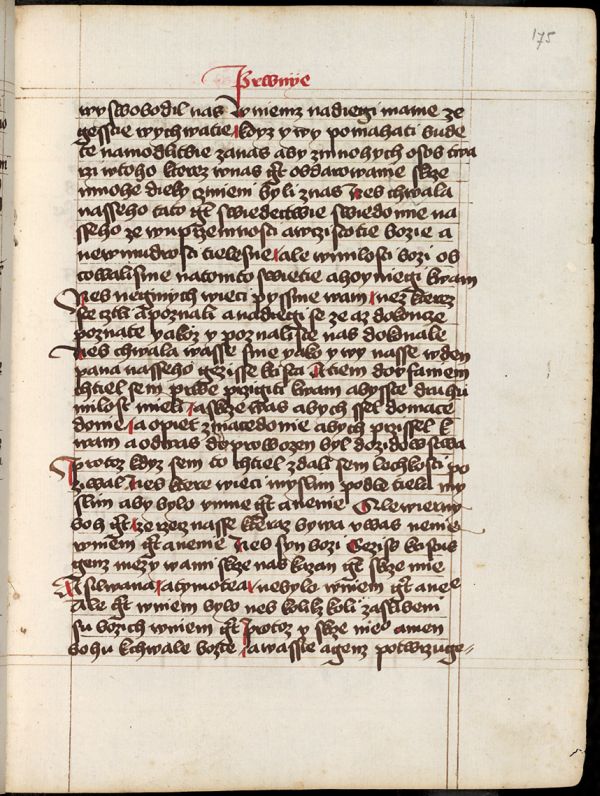 175
Prwnye
wyswobodil nas W niemz nadiegi mame ze
gesstie wychwatie kdyz y wy pomahati bude
te namodlitbie zanas aby zmnohych osob twa
rzi wtoho kterez wnas gest obdarowanie skrze
mnohe dieky czinieni byli znas Nes chwala
nasseho tato gest swiedectwie swiedomie na
sseho ze wuprziemnosti awczistotie bozie a
newmudrosti tielesne ale wmilosti bozi ob
cowalisme natomto swietie ahoyniegi kwam
Nes neginych wieci pyssime wam nez kterez
ste cztli apoznali anadiegi se ze az dokoncze
poznate yakoz y poznaliste nas dokonale
Nes chwala wasse sme yako y wy nasse wden
pana nasseho gezisse krista A tiem dowfaniem
chtiel sem prwe przigiti kwam abysste druhu
milost mieli askrze was abych ssel domace
donie a opiet zmacedonie abych prissel k
wam a odwas doprowozen byl dozidowstwa
Protoz kdyz sem to chtiel zdali sem lechkosti po
ziwal Nes ktere wieci myslim podle tiela my
slim aby bylo vmne gest anenie Ale wierny
boh gest ze rzecz nasse kteraz bywa vwas nenie
wniem gest anenie Nes syn bozi Geziss kristus
genz mezy wami skrze nas kazan gest skrze mie
A silwana atymotea nebylo wniem gest ane
ale gest wniem bylo nes kolikz koli zaslibeni
su bozich wniem gest Protoz y skrze nieo amen
bohu kchwale bozie awassie agenz potwrzuge